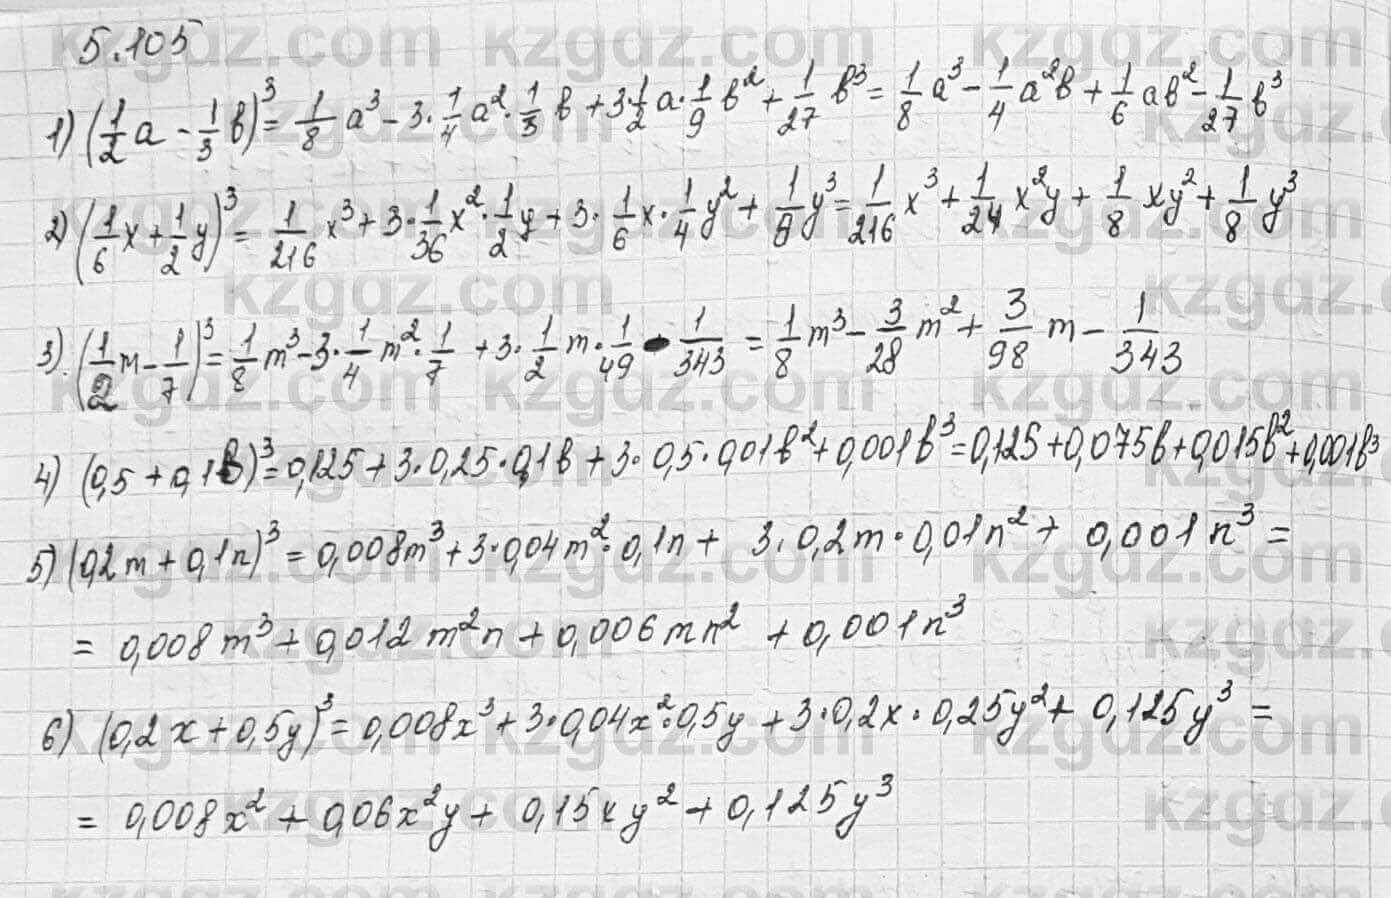 5.105
1) (1/2 a - 1/3 b)³ = 1/8 a³ - 3·1/4 a²·1/3 b + 3·1/2 a·1/9 b² + 1/27 b³ = 1/8 a³ - 1/4 a²b + 1/6 ab² - 1/27 b³
2) (1/6 x + 1/2 y)³ = 1/216 x³ + 3·1/36 x²·1/2 y + 3·1/6 x·1/4 y² + 1/8 y³ = 1/216 x³ + 1/24 x²y + 1/8 xy² + 1/8 y³
3). (1/2 m - 1/7)³ = 1/8 m³ - 3·1/4 m²·1/7 + 3·1/2 m·1/49 - 1/343 = 1/8 m³ - 3/28 m² + 3/98 m - 1/343
4) (0,5 + 0,1b)³ = 0,125 + 3·0,25·0,1b + 3·0,5·0,01b² + 0,001b³ = 0,125 + 0,075b + 0,015b² + 0,001b³
5) (0,2m + 0,1n)³ = 0,008m³ + 3·0,04m²·0,1n + 3·0,2m·0,01n² + 0,001n³ =
= 0,008m³ + 0,012m²n + 0,006mn² + 0,001n³
6) (0,2x + 0,5y)³ = 0,008x³ + 3·0,04x²·0,5y + 3·0,2x·0,25y² + 0,125y³ =
= 0,008x² + 0,06x²y + 0,15xy² + 0,125y³
kzgdz.com